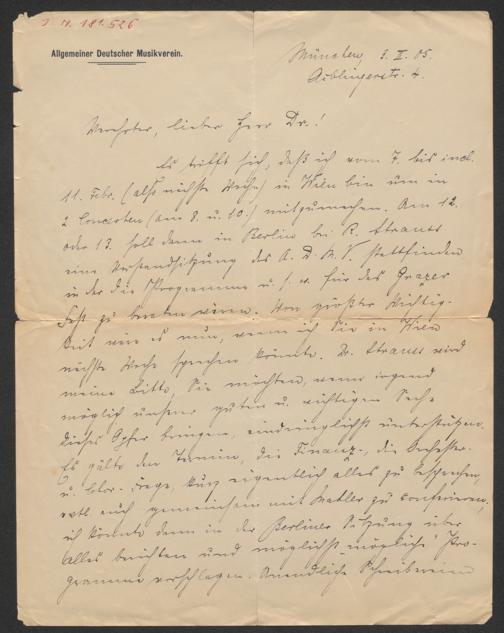 I. N. 181.526
Allgemeiner Deutscher Musikverein.
München, 3. II. 05.
Aiblingerstr. 4.
Verehrter, lieber Herr Dr.!
Es trifft sich, daß ich vom 7. bis incl.
11. Febr. (also nächste Woche) in Wien bin um in
2 Concerten (am 8. u. 10.) mitzumachen. Am 12.
oder 13. soll dann in Berlin bei R. Strauss
eine Vorstandsitzung des A. D. M. V. stattfinden
in der die Programme u. s. w. für das Grazer
Fest zu beraten wären. Von größter Wichtig-
keit wäre es nun, wenn ich Sie in Wien
nächste Woche sprechen könnte. Dr. Strauss wird
meine Bitte, Sie möchten, wenn irgend
möglich unserer guten u. wichtigen Sache
dieses Opfer bringen, eindringlichst unterstützen.
Es gälte den Termin, die Finanz-, die Orchester-
u. Chor-Frage, kurz eigentlich alles zu besprechen,
evtl. auch gemeinsam mit Mahler zu conferieren,
ich könnte dann in der Berliner Sitzung über
alles berichten und möglichst "mögliche" Pro-
gramme vorschlagen. Unendliche Schreibereien